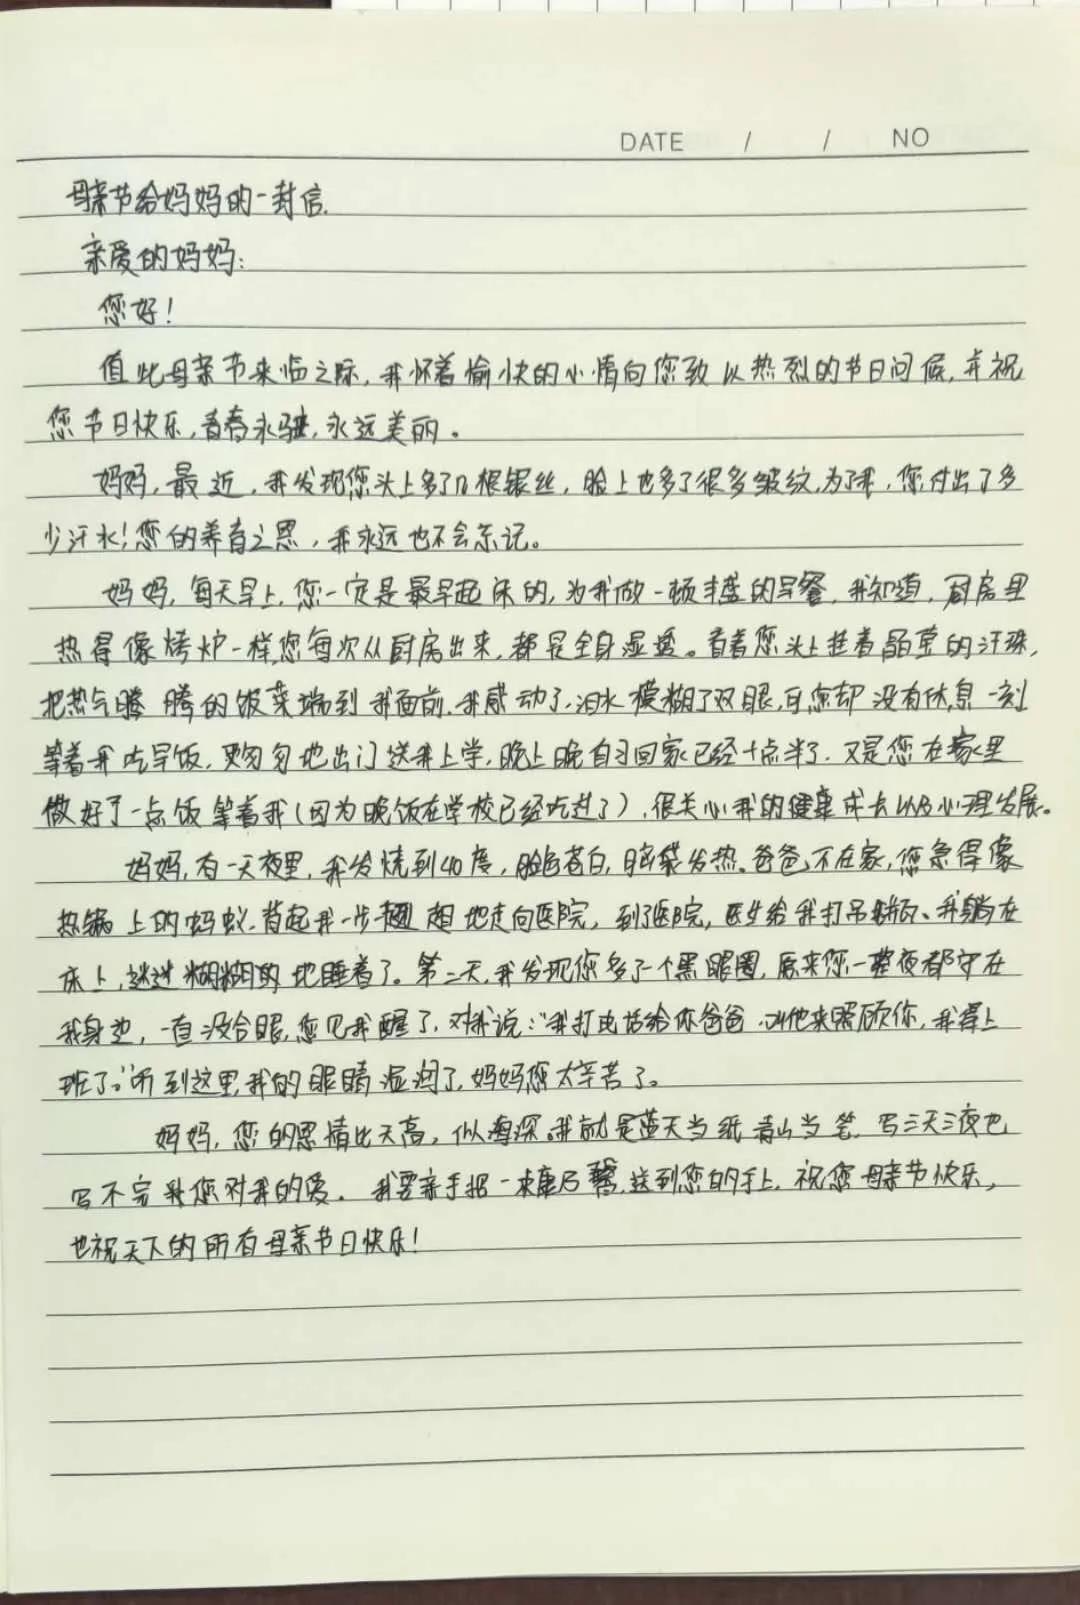 DATE / / NO
母亲节给妈妈的一封信.
亲爱的妈妈:
您好!
值此母亲节来临之际,我怀着愉快的心情向您致以热烈的节日问候,并祝
您节日快乐,青春永驻,永远美丽。
妈妈,最近,我发现您头上多了几根银丝,脸上也多了很多皱纹,为了我,您付出了多
少汗水!您的养育之恩,我永远也不会忘记。
妈妈,每天早上,您一定是最早起床的,为我做一顿丰盛的早餐,我知道,厨房里
热得像烤炉一样,您每次从厨房出来,都是全身湿透。看着您头上挂着晶莹的汗珠,
把热气腾腾的饭菜端到我面前,我感动了,泪水模糊了双眼,可您却没有休息一刻
等着我吃早饭,更匆匆地出门送我上学,晚上晚自习回家已经十点半了,又是您在家里
做好了一点饭等着我(因为晚饭在学校已经吃过了),很关心我的健康成长以及心理发展。
妈妈,有一天夜里,我发烧到40度,脸色苍白,脑袋发热.爸爸不在家,您急得像
热锅上的蚂蚁.背起我一步趔趄地走向医院,到了医院,医生给我打吊瓶、我躺在
床上,迷迷糊糊地睡着了。第二天,我发现您多了一个黑眼圈,原来您一整夜都守在
我身边,一直没合眼,您见我醒了,对我说:"我打电话给你爸爸,叫他来照顾你,我得上
班了。"听到这里,我的眼睛湿润了,妈妈您太辛苦了。
妈妈,您的恩情比天高,似海深。我就是蓝天当纸青山当笔,写三天三夜也
写不完我您对我的爱。我要亲手把一束康乃馨,送到您的手上,祝您母亲节快乐,
也祝天下的所有母亲节日快乐!